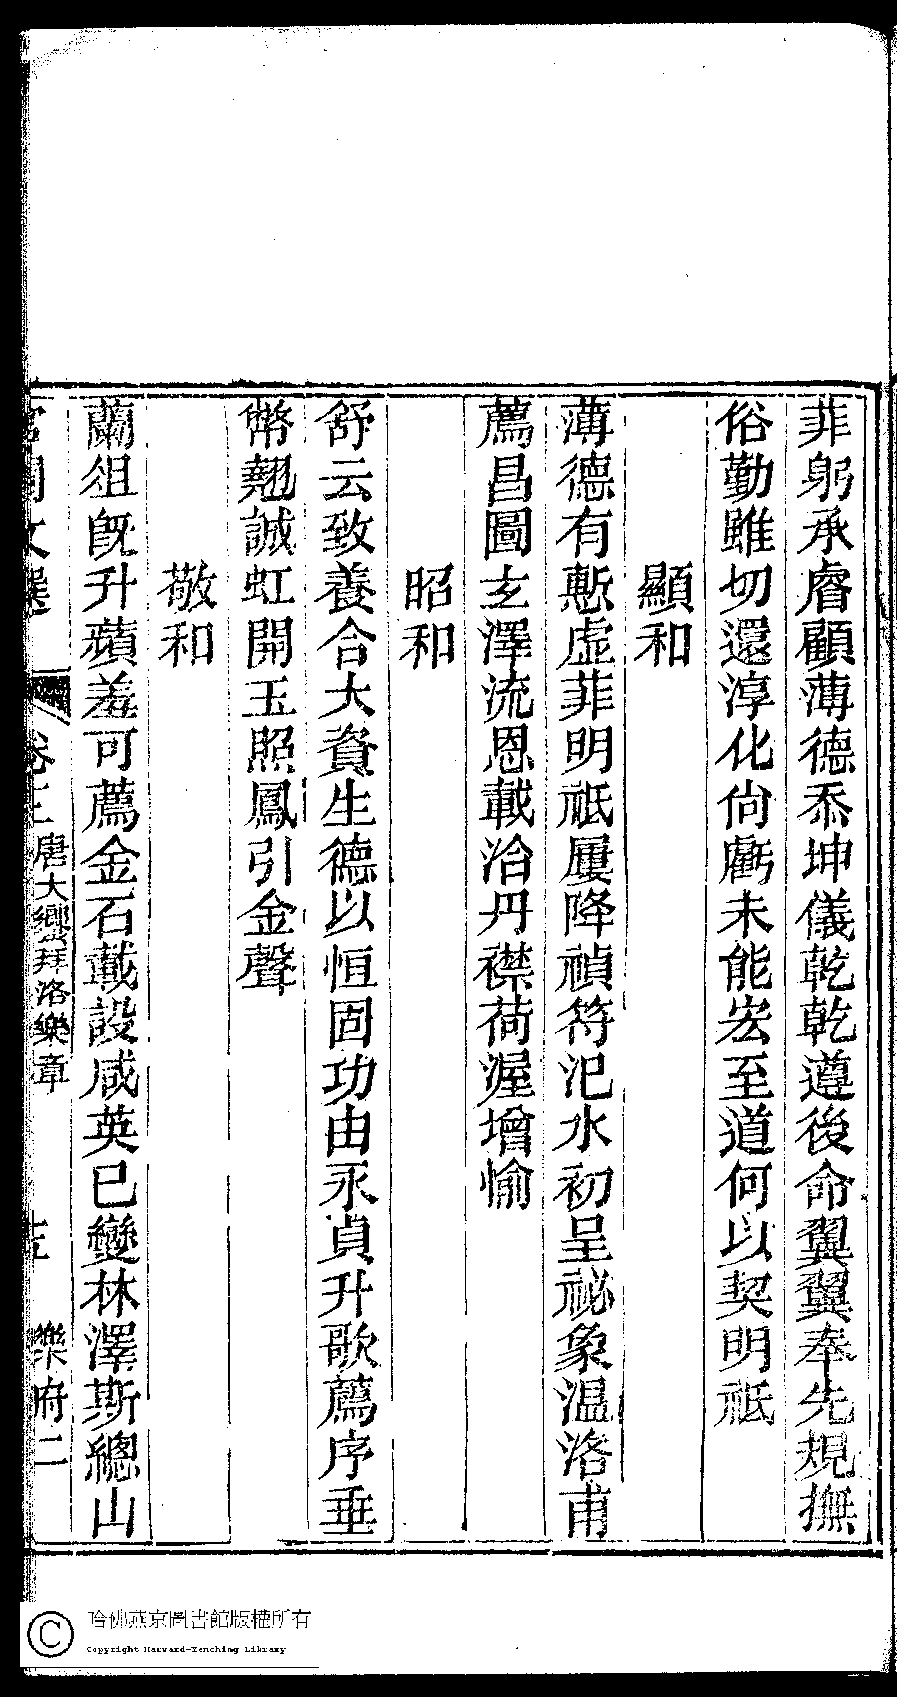 菲躬承睿顧薄德忝坤儀乾乾遵後命翼翼奉先規撫
俗勤雖切還淳化尙虧未能宏至道何以契明祗
顯和
薄德有慙虛菲明祗屢降禎符汜水初呈祕象温洛甫
薦昌圖玄澤流恩載洽丹襟荷渥增愉
昭和
舒云致養合大資生德以恒固功由永貞升歌薦序垂
幣翹誠虹開玉照鳳引金聲
敬和
蘭俎旣升蘋羞可薦金石載設咸英已變林澤斯總山
宮閨文選 卷三 唐大饗拜洛樂章 樂府二
哈佛燕京圖書館版權所有
Copyright Harvard-Yenching Library